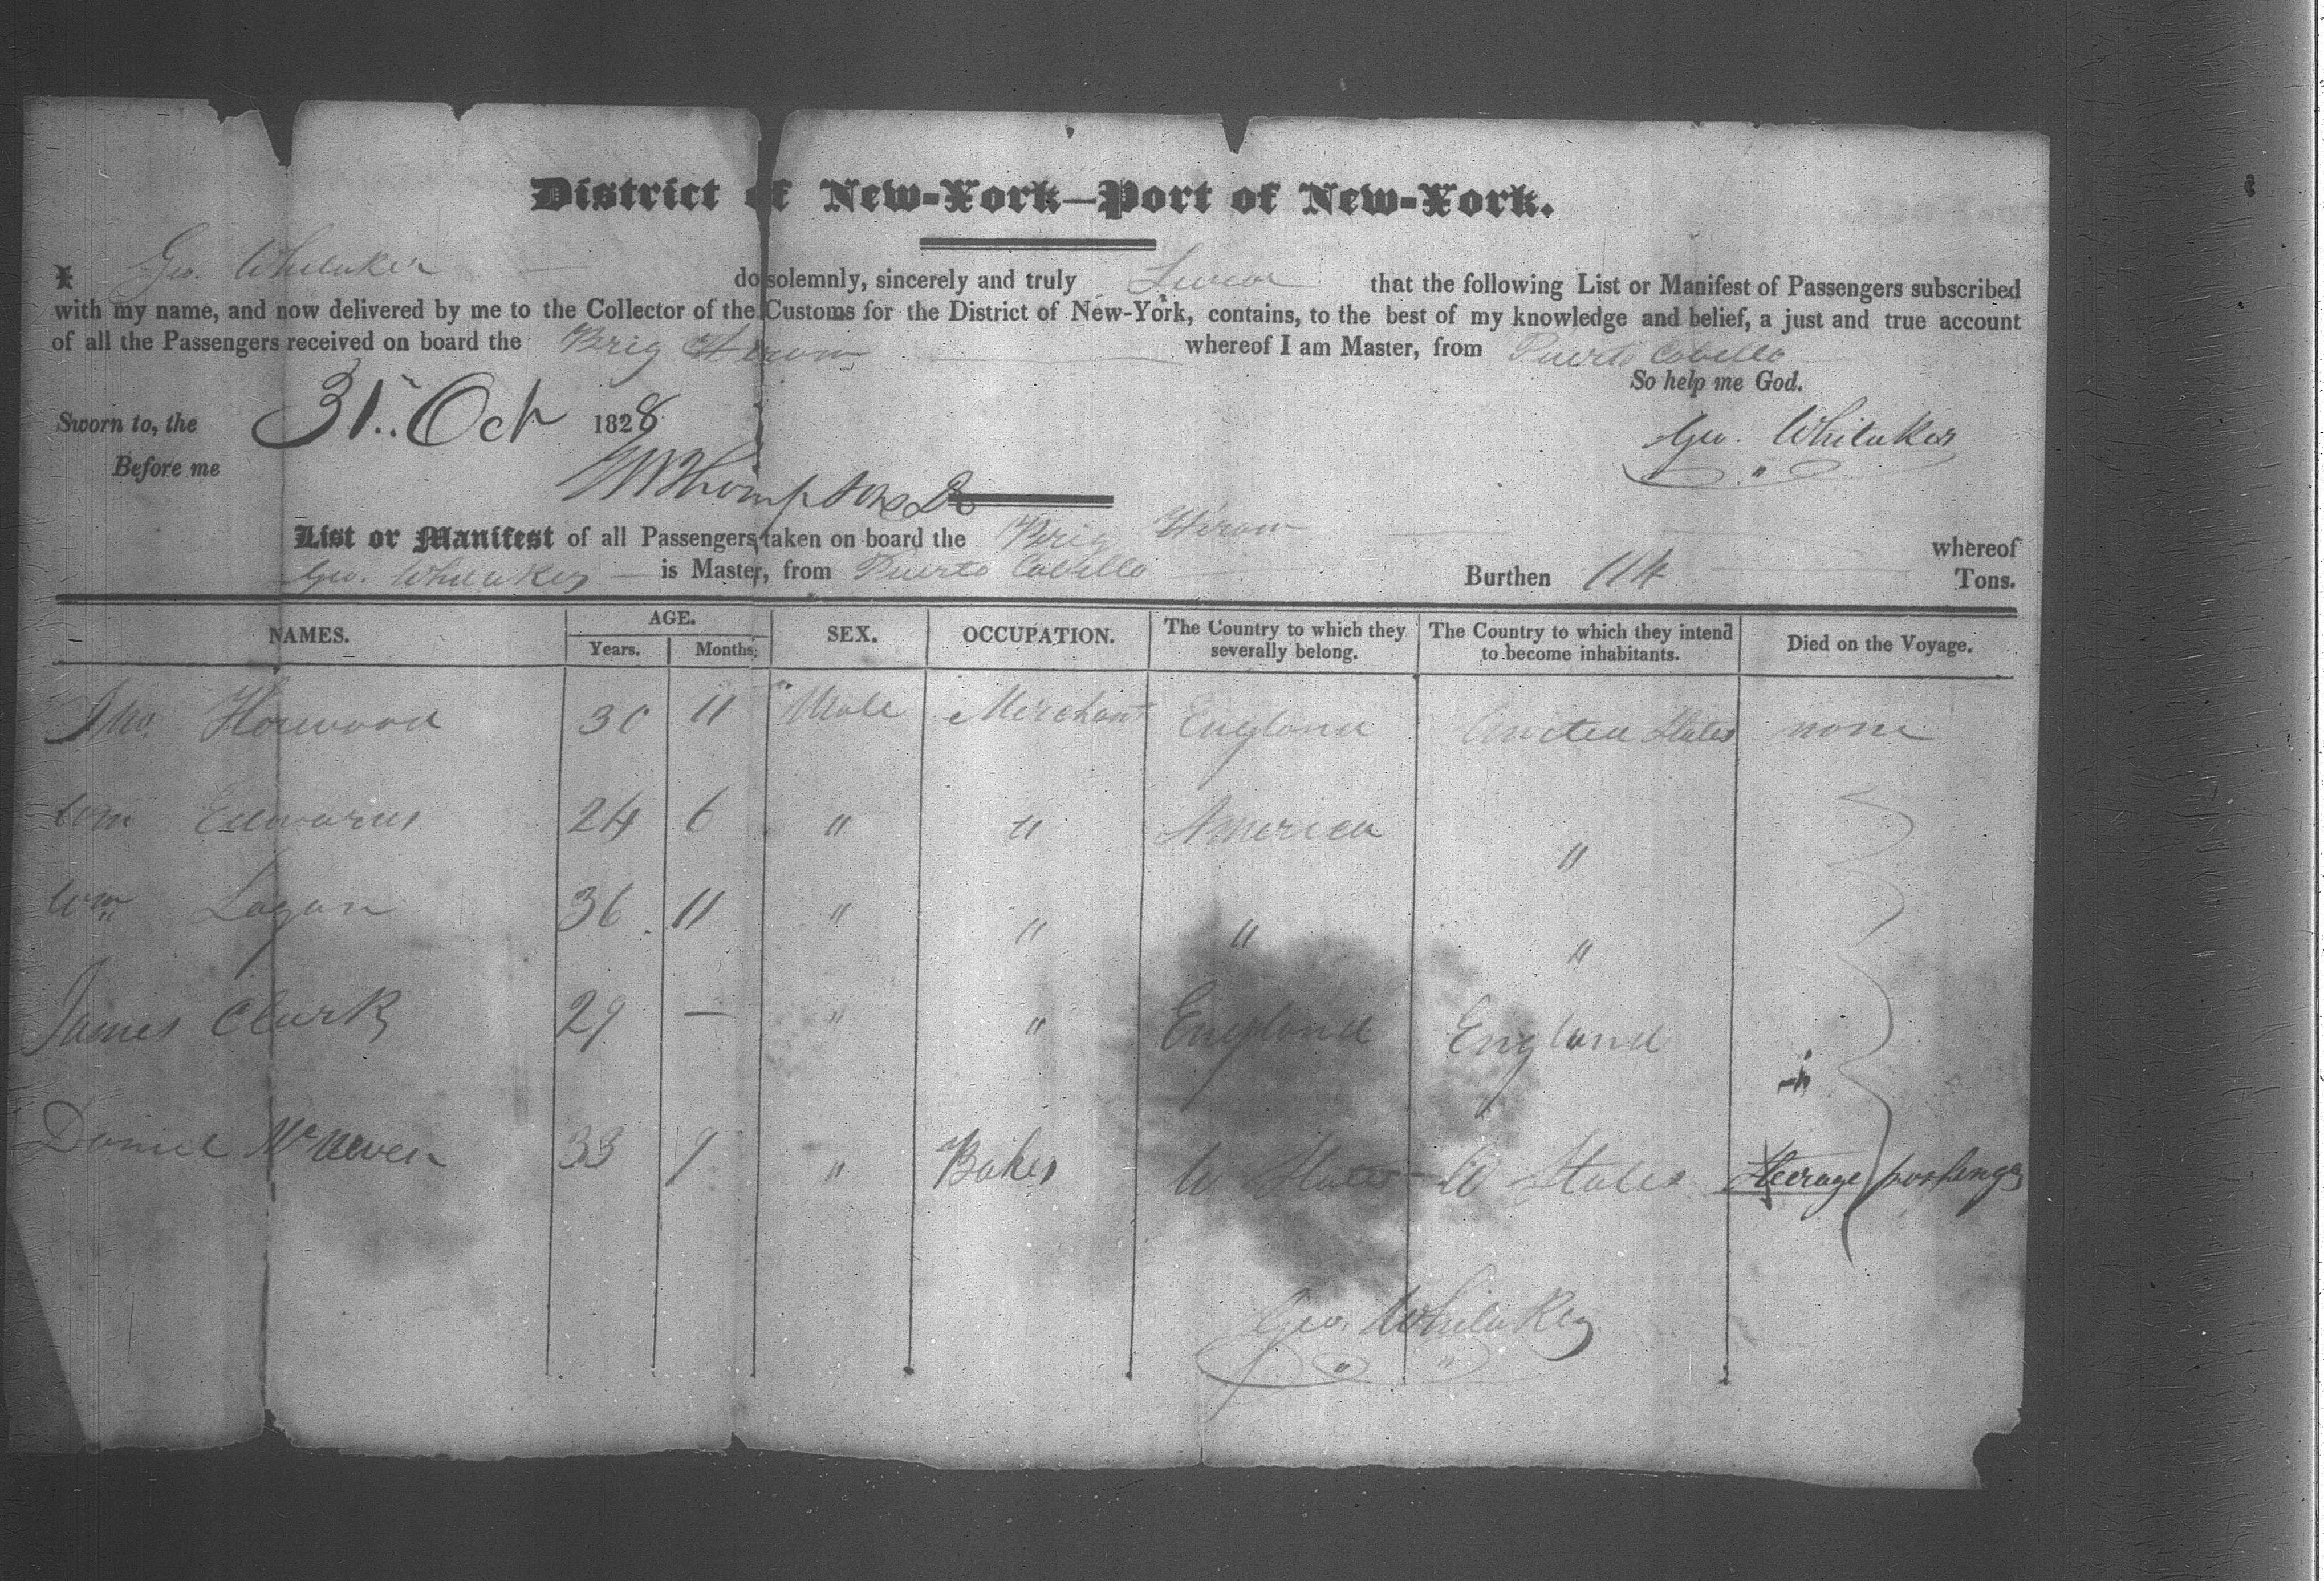 District of New-York—Port of New-York.
I Geo. Whitaker do solemnly, sincerely and truly Swear that the following List or Manifest of Passengers subscribed
with my name, and now delivered by me to the Collector of the Customs for the District of New-York, contains, to the best of my knowledge and belief, a just and true account
of all the Passengers received on board the Brig Hiram whereof I am Master, from Puerto Cabello
So help me God.
Sworn to, the 31.. Oct 1828
Geo. Whitaker
Before me
Thompson
List or Manifest of all Passengers taken on board the Brig Hiram whereof
Geo. Whitaker is Master, from Puerto Cabello Burthen 114 Tons.
NAMES. AGE. Years. Months. SEX. OCCUPATION. The Country to which they severally belong. The Country to which they intend to become inhabitants. Died on the Voyage.
Jno. Horwood 30 11 Male Merchant England United States none
Wm Edwards 24 6 " " America "
Wm Logan 36 11 " " " "
James Clark 29 — " " England England
Daniel 33 9 " Baker U States U States Steerage passenger
Geo. Whitaker